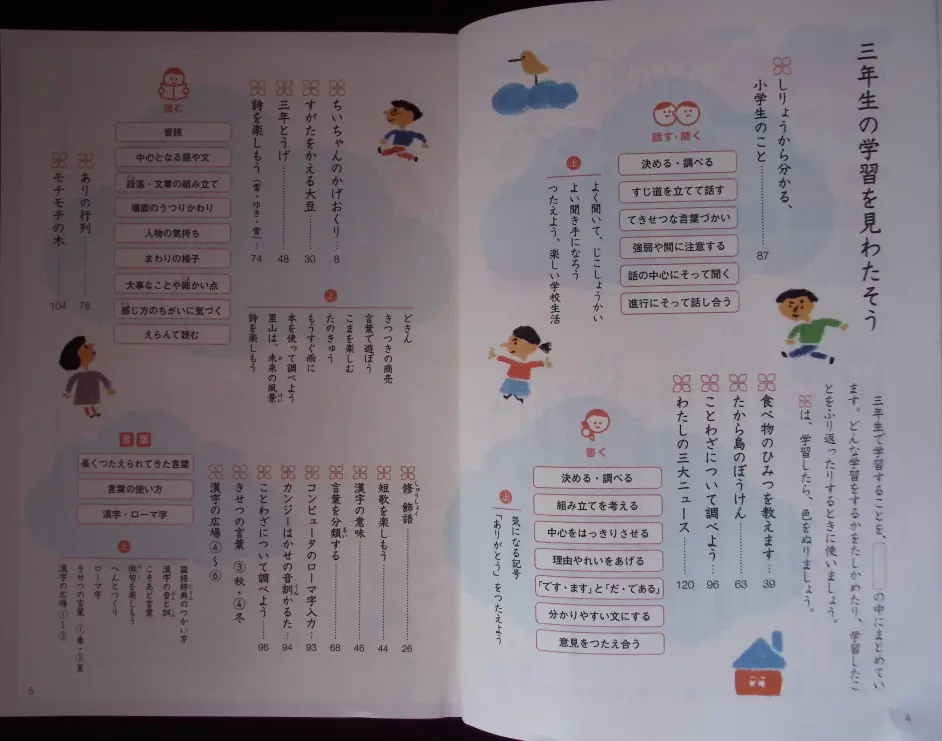 三年生の学習を見わたそう
三年生で学習することを、　の中にまとめてい
ます。どんな学習をするかをたしかめたり、学習したこ
とをふり返ったりするときに使いましょう。
は、学習したら、色をぬりましょう。
しりょうから分かる、
小学生のこと……87
話す・聞く
決める・調べる
すじ道を立てて話す
てきせつな言葉づかい
強弱や間に注意する
話の中心にそって聞く
進行にそって話し合う
上
よく聞いて、じこしょうかい
よい聞き手になろう
つたえよう、楽しい学校生活
食べ物のひみつを教えます……39
たから島のぼうけん……63
ことわざについて調べよう……96
わたしの三大ニュース……120
書く
決める・調べる
組み立てを考える
中心をはっきりさせる
理由やれいをあげる
「です・ます」と「だ・である」
分かりやすい文にする
意見をつたえ合う
上
気になる記号
「ありがとう」をつたえよう
4
ちいちゃんのかげおくり……8
すがたをかえる大豆……30
三年とうげ……48
詩を楽しもう（雪・ゆき・雪）…74
読む
音読
中心となる語や文
段落・文章の組み立て
場面のうつりかわり
人物の気持ち
まわりの様子
大事なことや細かい点
感じ方のちがいに気づく
えらんで読む
ありの行列……78
モチモチの木……104
上
どきん
きつつきの商売
言葉で遊ぼう
こまを楽しむ
たのきゅう
もうすぐ雨に
本を使って調べよう
里山は、未来の風景
詩を楽しもう
修飾語……26
短歌を楽しもう……44
漢字の意味……46
言葉を分類する……68
コンピュータのローマ字入力…93
カンジーはかせの音訓かるた…94
ことわざについて調べよう…96
きせつの言葉 ③秋・④冬
漢字の広場④〜⑥
言葉
長くつたえられてきた言葉
言葉の使い方
漢字・ローマ字
上
国語辞典のつかい方
漢字の音と訓
こそあど言葉
俳句を楽しもう
へんとつくり
ローマ字
きせつの言葉 ①春・②夏
漢字の広場①〜③
5